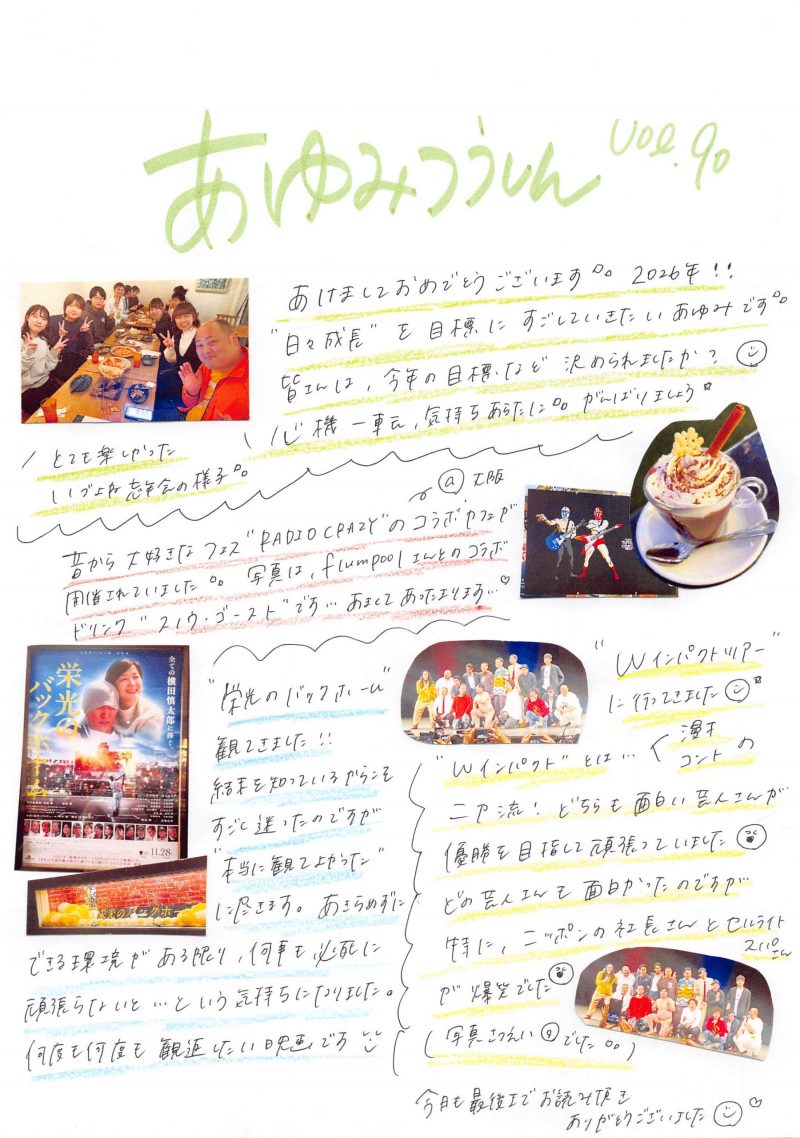 あゆみつうしん vol.90
あけましておめでとうございます。。2026年!!
"日々成長"を目標にすごしていきたいあゆみです。。
皆さんは、今年の目標など決められましたか?
心機一転、気持ちあらたに。。がんばりましょう
とても楽しかった
忘年会の様子。。
@大阪
昔から大好きなフェス"RADIO CRAZY"のコラボカフェが
開催されていました。。写真は、flumpoolさんとのコラボ
ドリンク"スノウ・ゴースト"です…あまくてあったまります…♡
全ての横田慎太郎に捧ぐ。
栄光の
バックホーム
11.28
"栄光のバックホーム"
観てきました!!
結末を知っているからこそ
すごし迷ったのですが
"本当に観てよかった"
に尽きます。あきらめずに
できる環境がある限り、何事も必死に
頑張らないと…という気持ちになりました。
何度も何度も観返したい映画です
"Wインパクトツアー"
に行ってきました
"Wインパクト"とは…
漫才
コントの
二刀流!どちらも面白い芸人さんが
優勝を目指して頑張っていました
どの芸人さんも面白かったのですが
特に、ニッポンの社長さんとセルライト
スパさん
が爆笑でした
(写真さつえい でした。。)
今月も最後までお読み頂き
ありがとうございました ♡